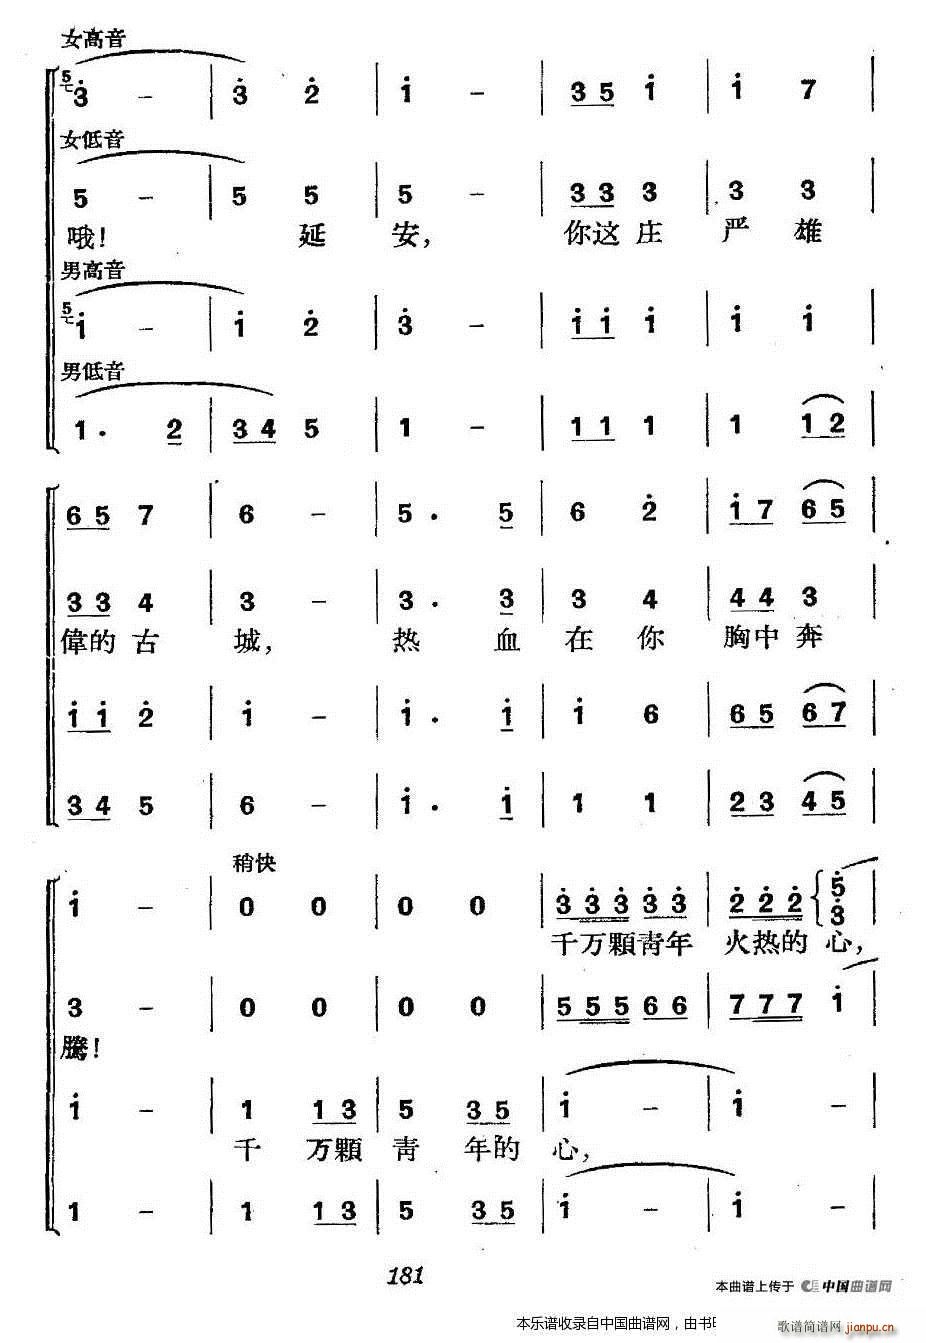 女高音
5 3 – | 3 2 | 1 – | 3 5 1 | 1 7
女低音
5 – | 5 5 | 5 – | 3 3 3 | 3 3
哦! 延 安, 你这庄 严 雄
男高音
5 1 – | 1 2 | 3 – | 1 1 1 | 1 1
男低音
1 . 2 | 3 4 5 | 1 – | 1 1 1 | 1 1 2
6 5 7 | 6 – | 5 . 5 | 6 2 | 1 7 6 5
3 3 4 | 3 – | 3 . 3 | 3 4 | 4 4 3
偉的古 城, 热 血 在 你 胸中奔
1 1 2 | 1 – | 1 . 1 | 1 6 | 6 5 6 7
3 4 5 | 6 – | 1 . 1 | 1 1 | 2 3 4 5
稍快
1 – | 0 0 | 0 0 | 3 3 3 3 3 | 2 2 2 5 3
千万顆青年 火热的心,
3 – | 0 0 | 0 0 | 5 5 5 6 6 | 7 7 7 1
騰!
1 – | 1 1 3 | 5 3 5 | 1 – | 1 –
千 万顆 青 年的 心,
1 – | 1 1 3 | 5 3 5 | 1 – | 1 –
181
本曲谱上传于 中国曲谱网
本乐谱收录自中国曲谱网，由书
歌谱简谱网
jianpu.cn